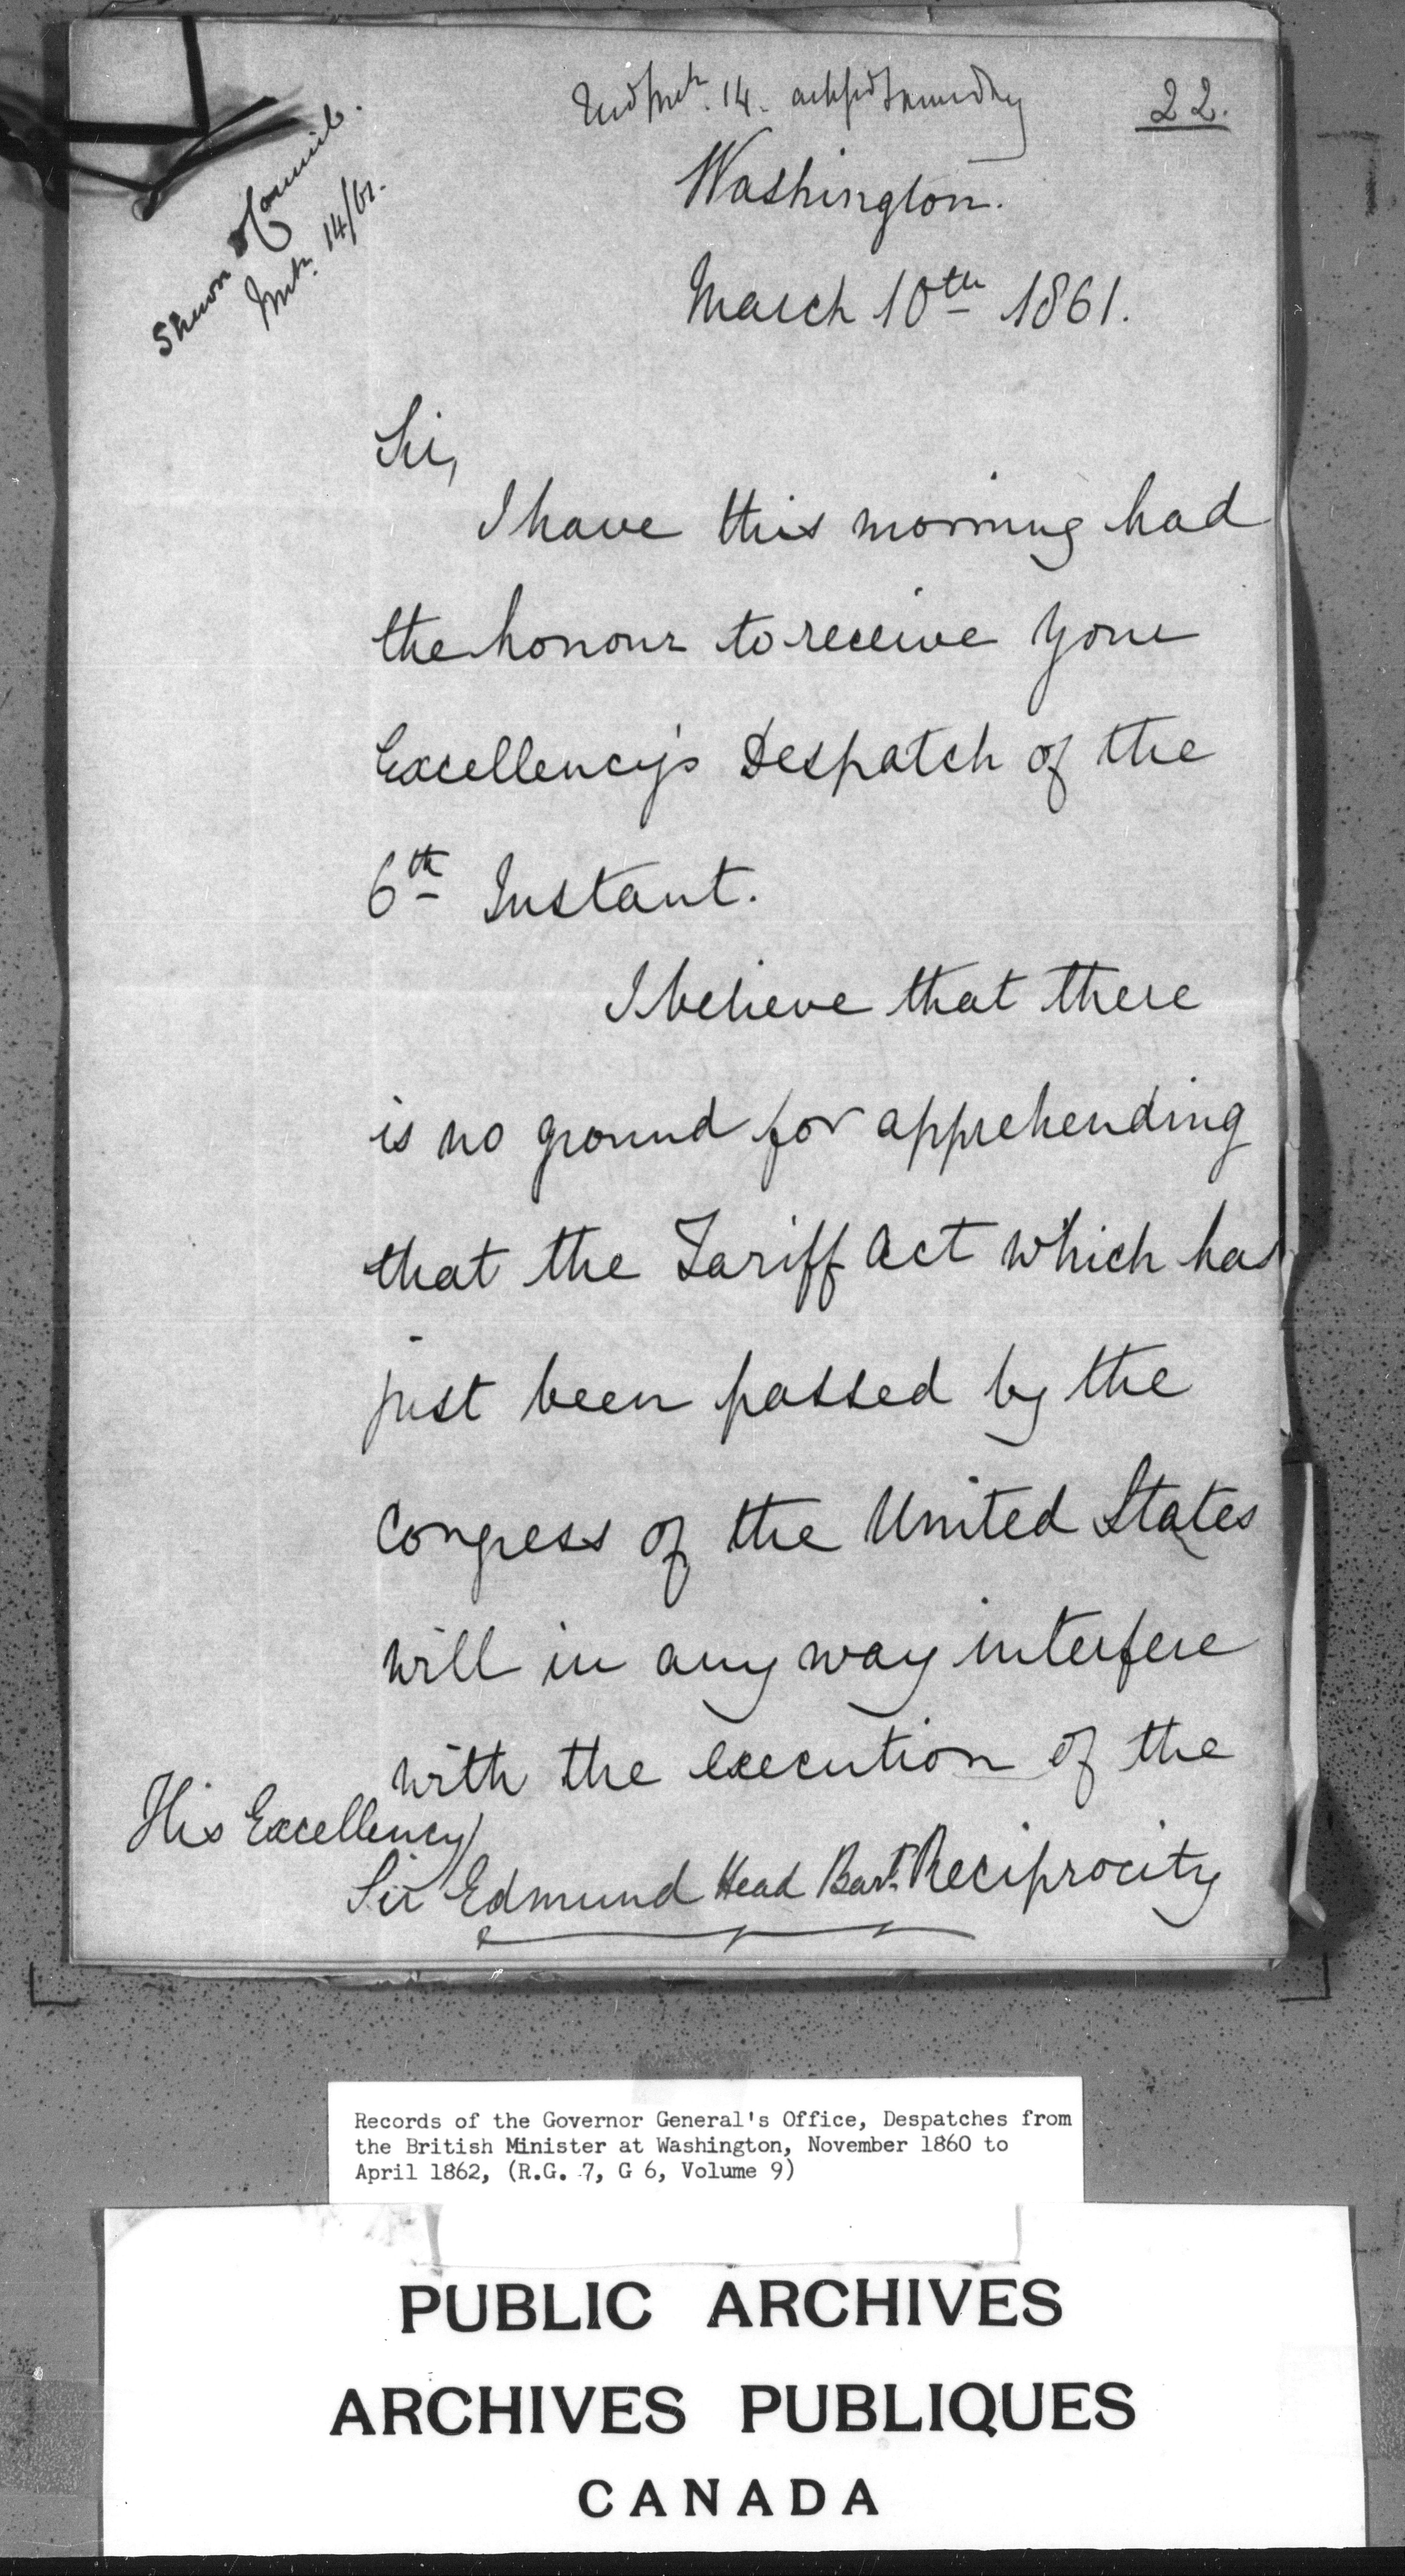 Recd Mch. 14. ackgd same day
22.
Shewn Council.
Mch. 14/61.
Washington.
March 10th 1861.
Sir,
I have this morning had
the honour to receive Your
Excellency's Despatch of the
6th Instant.
I believe that there
is no ground for apprehending
that the Tariff Act which has
just been passed by the
Congress of the United States
will in any way interfere
with the execution of the
Reciprocity
His Excellency
Sir Edmund Head Bart.
Records of the Governor General's Office, Despatches from
the British Minister at Washington, November 1860 to
April 1862, (R.G. 7, G 6, Volume 9)
PUBLIC ARCHIVES
ARCHIVES PUBLIQUES
CANADA